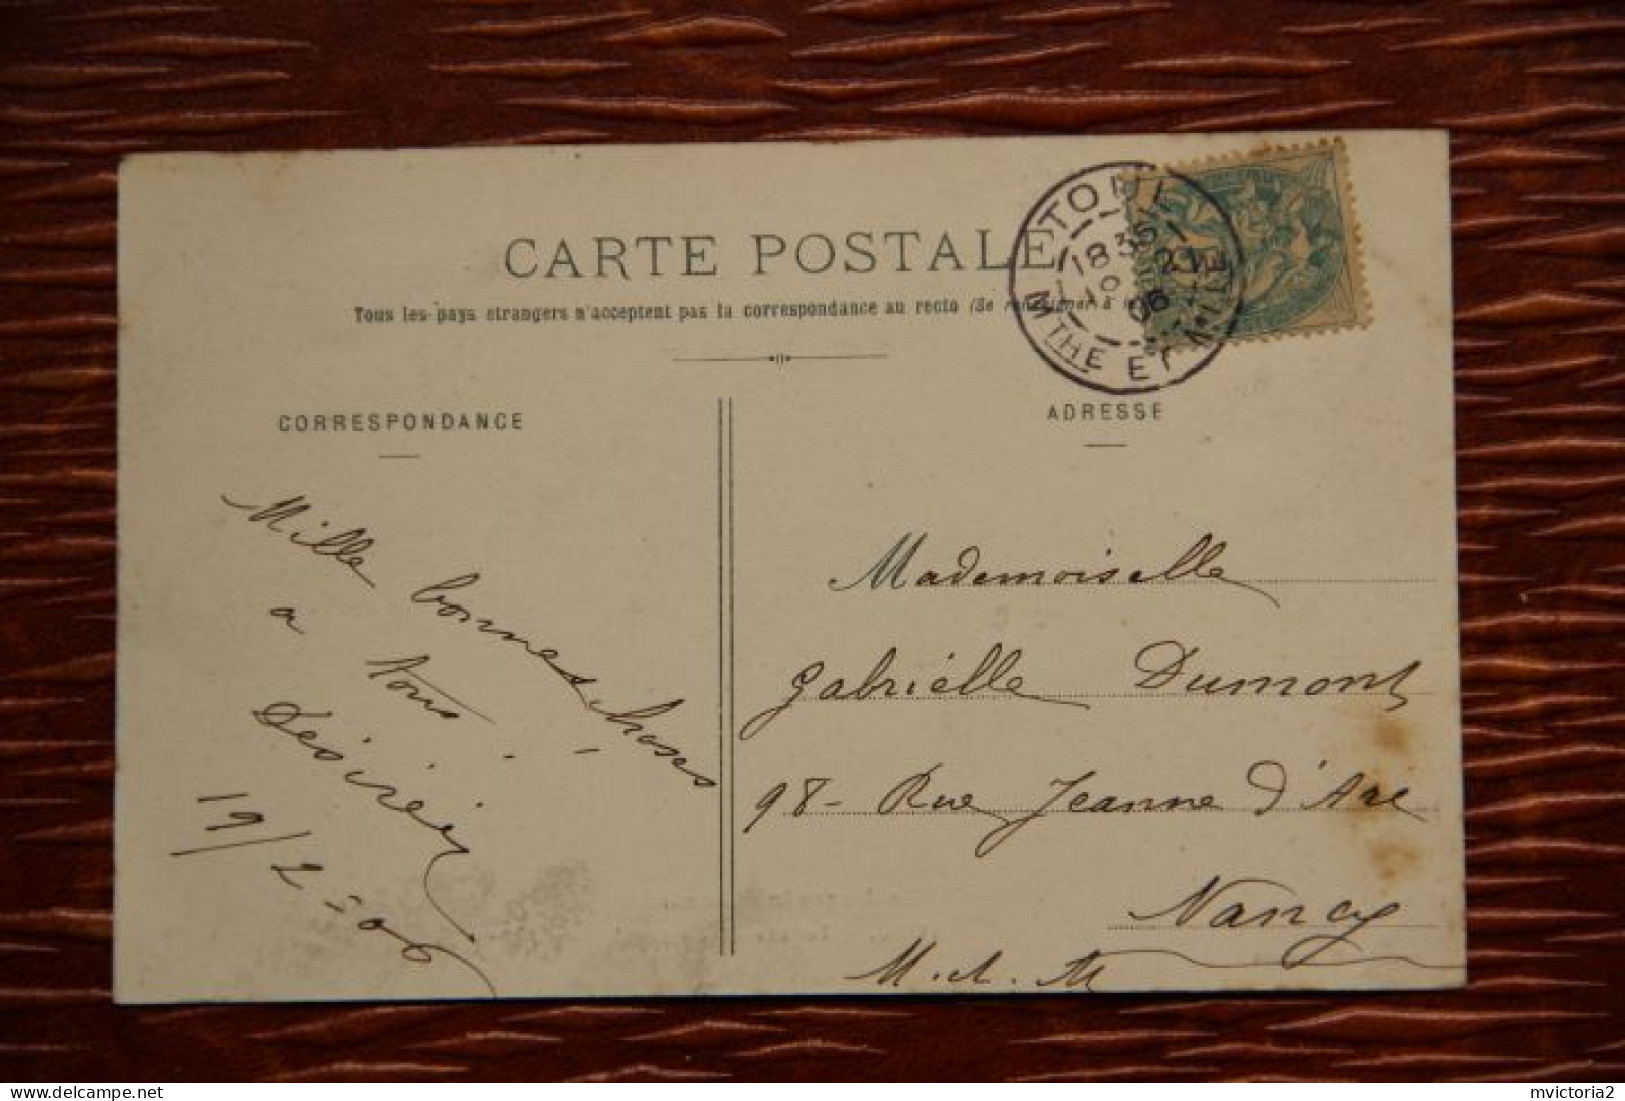 CARTE POSTALE
Tous les pays étrangers n'acceptent pas la correspondance au recto (Se renseigner à la
CORRESPONDANCE
ADRESSE
18 35
19
06
MTHE ET MLLE
Mille bonnes choses
a tous
Désirée
19/2-06
Mademoiselle
Gabrielle Dumont
98- Rue Jeanne d'Arc
Nancy
M.-et.-M
delcampe.net
mvictoria2